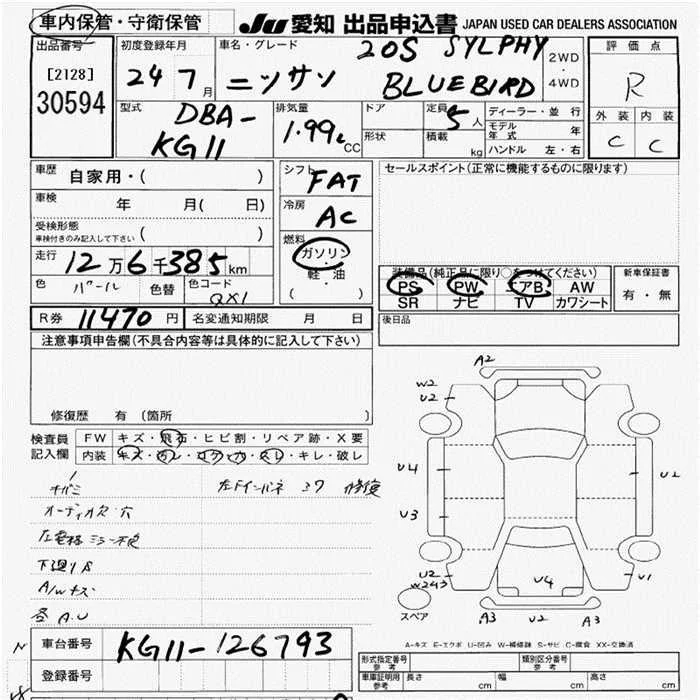 車内保管・守衛保管
JU 愛知 出品申込書 JAPAN USED CAR DEALERS ASSOCIATION
出品番号
[2128]
30594
初度登録年月
24 7月
車名・グレード
20S SYLPHY
ニッサン BLUEBIRD
2WD
・
4WD
評価点
R
外装 内装
C C
型式
DBA-
KG11
排気量
1.99ℓ CC
ドア
形状
定員 5人
積載 kg
ディーラー・並行
モデル年式 年
ハンドル 左・右
車歴 自家用・( )
車検 年 月( 日)
受検形態
車検付きのみ記入して下さい ( )
走行 12万6千385km
色 パール 色替 色コード QX1
シフト FAT
冷房 AC
燃料
ガソリン
・
軽・油
( )
セールスポイント(正常に機能するものに限ります)
装備品(純正品に限り○をつけてください)
PS PW エアB AW
SR ナビ TV カワシート
新車保証書
有・無
R券 11470円 名変通知期限 月 日
後日品
注意事項申告欄(不具合内容等は具体的に記入して下さい)
修復歴 有 (箇所 )
検査員
記入欄
FW キズ・飛石・ヒビ割・リペア跡・X要
内装 キズ・汚レ・コゲ・穴・スレ・キレ・破レ
左Fインパネ 37 修復
オーディオ欠 穴
左電格ミラー不良
下廻りサ
A/Wキズ
各A.U
A2
W2
U2
U4
U3
U2
U2
W2 U3
U4
U1
A3 U2 A3
スペア
A-キズ E-エクボ U-凹み W-補修跡 S-サビ C-腐食 XX-交換済
車台番号 KG11-126793
登録番号
形式指定番号
参考
類別区分番号
参考
車庫証明用
参考
長さ cm 幅 cm 高さ cm